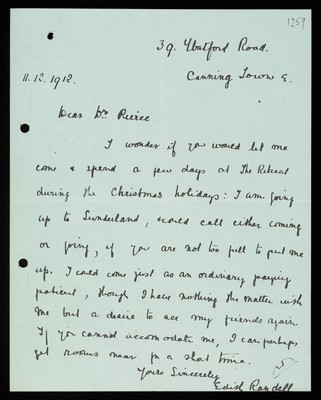 1259
39. Watford Road.
11.12.1912. Canning Town E.
Dear Dr Pierce
I wonder if you would let me
come & spend a few days at The Retreat
during the Christmas holidays: I am going
up to Sunderland, & could call either coming
or going, if you are not too full to put me
up. I could come just as an ordinary paying
patient, though I have nothing the matter with
me but a desire to see my friends again
If you cannot accomodate me, I can perhaps
get rooms near for a short time.
Yours Sincerely
Edith Randell